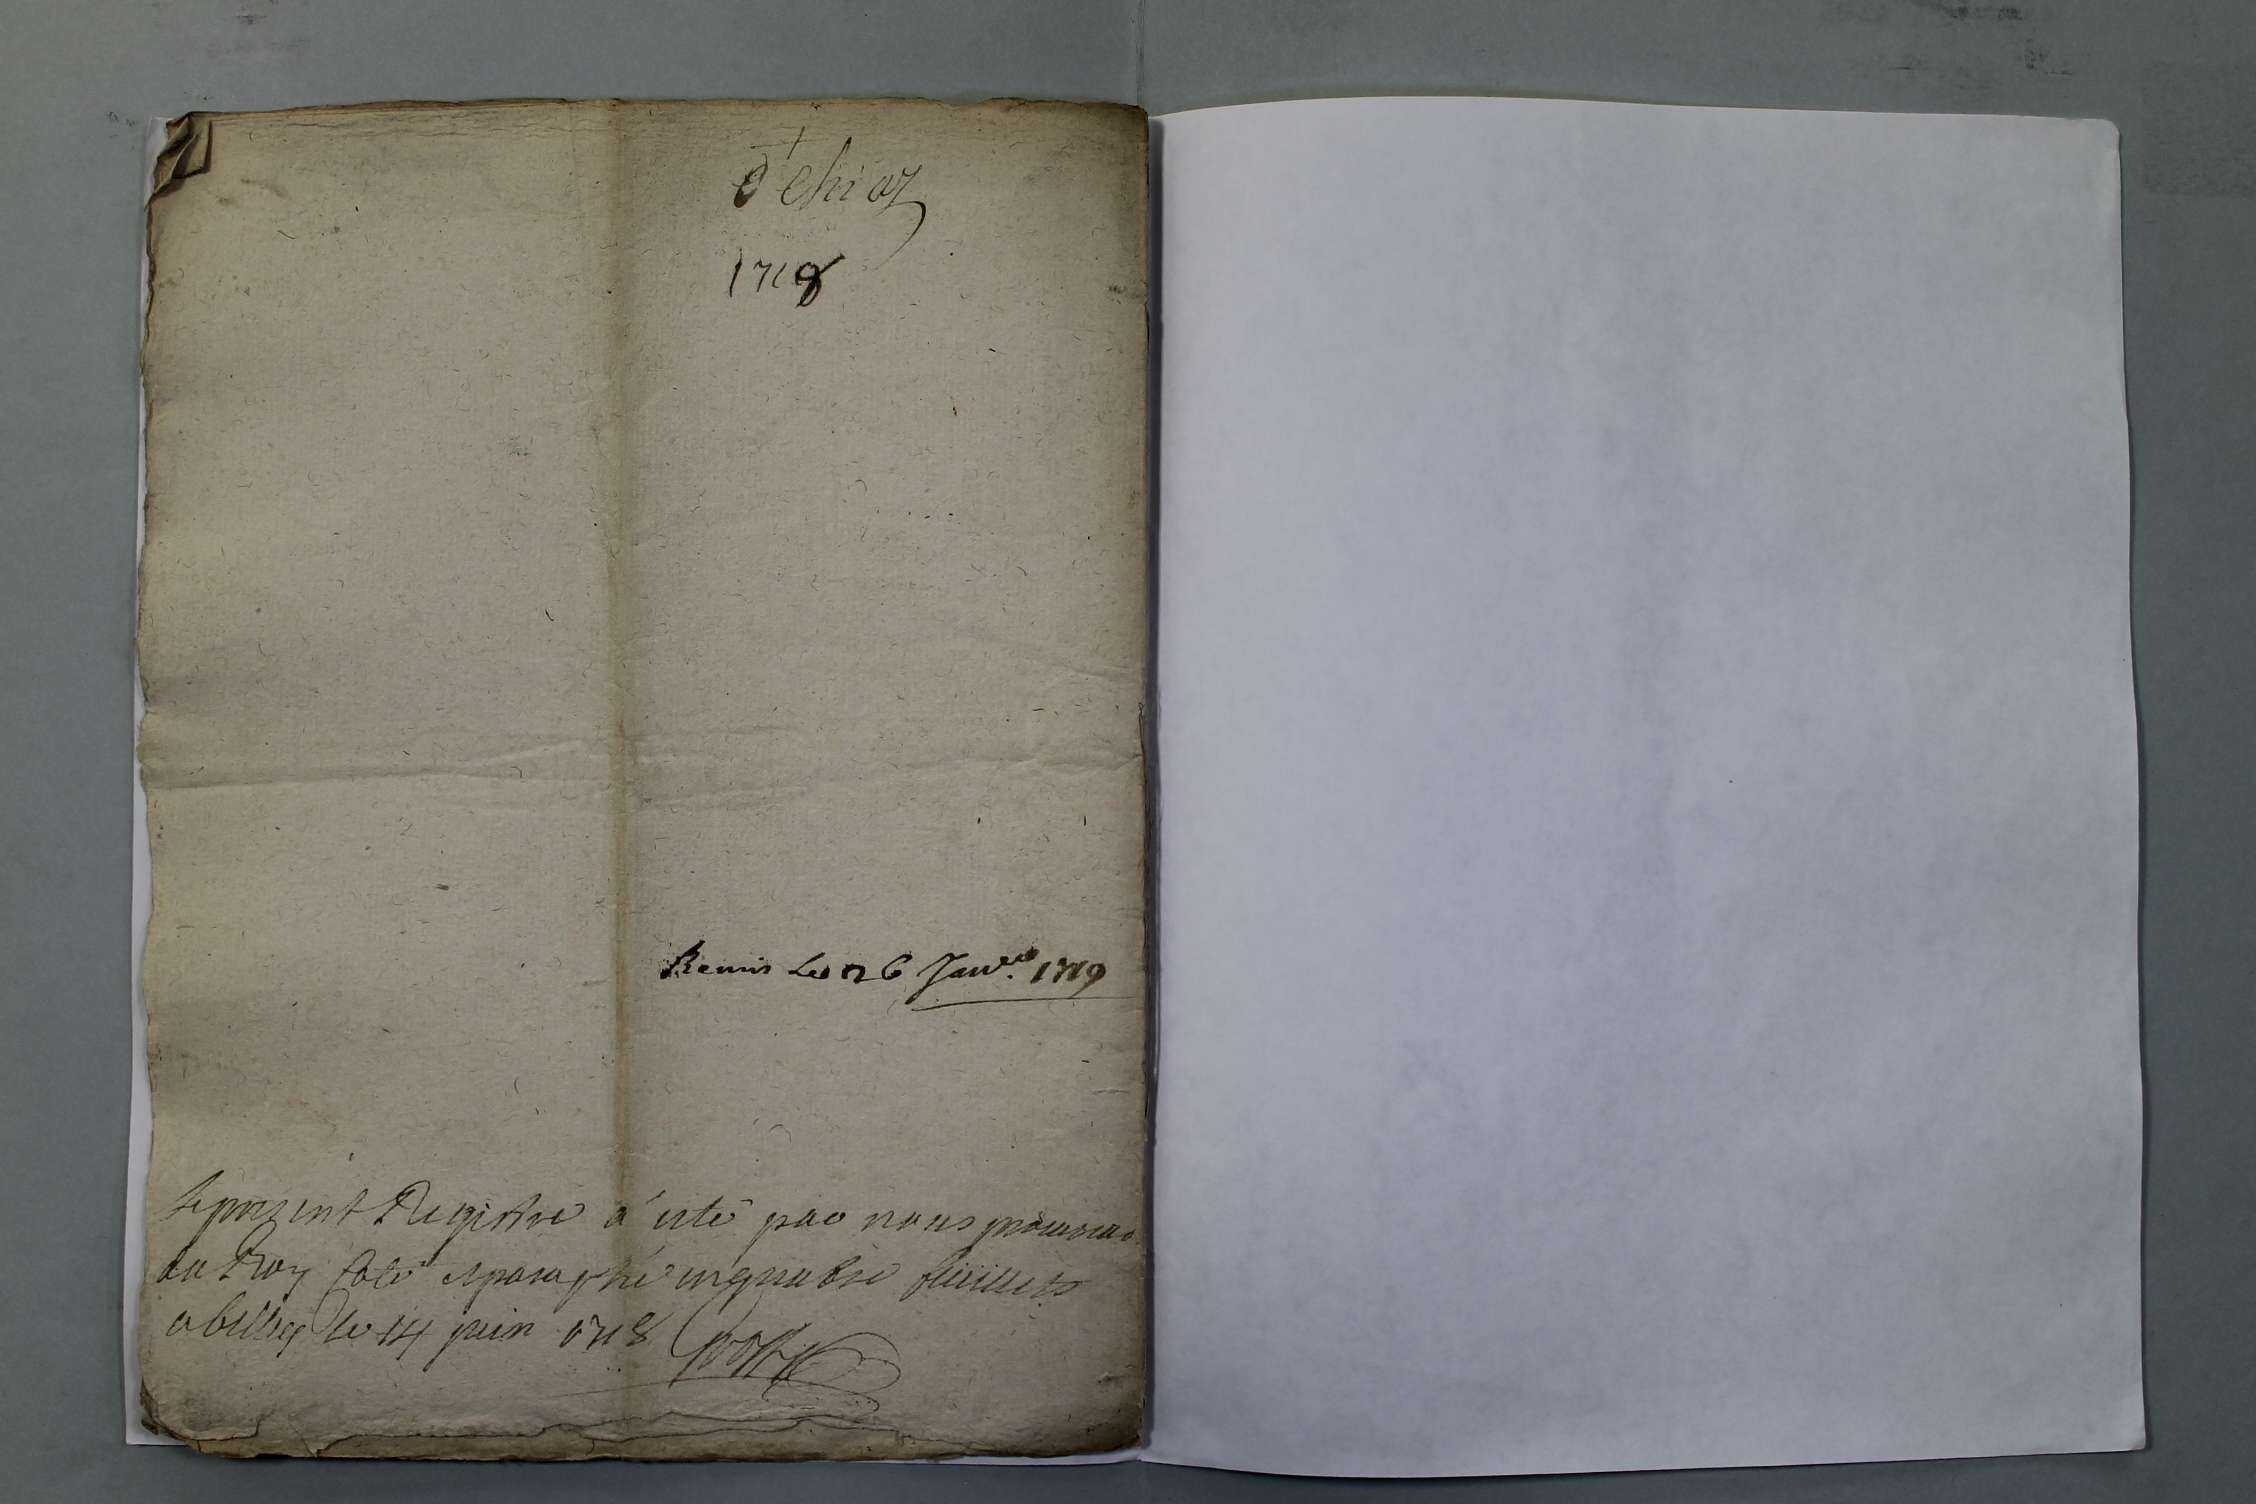 d'Echiaz
1718
Remis Le 26 Janv.er 1719
Le present Registre a esté par nous procureur
du Roy Coté et paraphé en quatre feüillets
a belley le 14 juin 1718